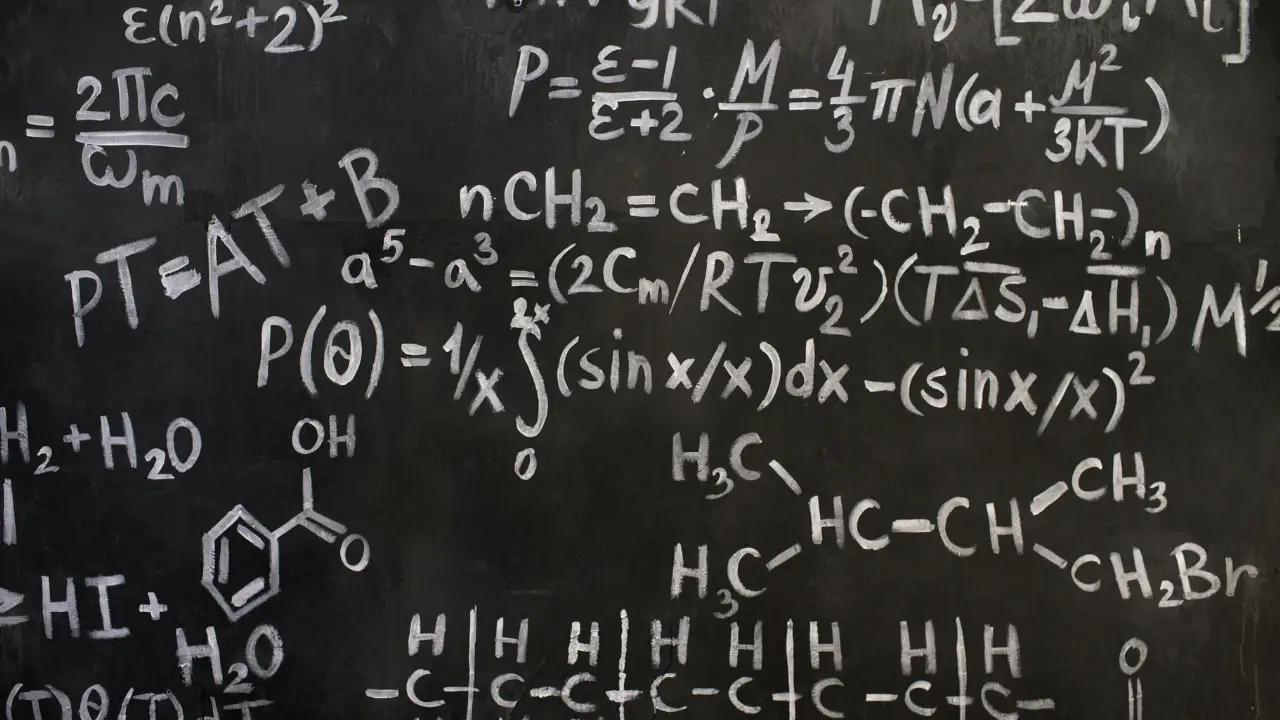 ε(n²+2)²
P = (ε-1)/(ε+2) · M/ρ = 4/3 πN(a + M²/3KT)
n = 2πc/ωm
PT = AT + B
nCH₂ = CH₂ → (-CH₂-CH₂-)n
a⁵ - a³ = (2Cm/RTv₂²)(TΔS̅₁ - ΔH̅₁) M
P(θ) = 1/x ∫₀²ˣ (sin x/x)dx - (sinx/x)²
H₂ + H₂O
OH
O
H₃C
H₃C
HC-CH
CH₃
CH₂Br
HI +
H₂O
H H H H H H H H
-C-C-C-C-C-C-C-C-
O